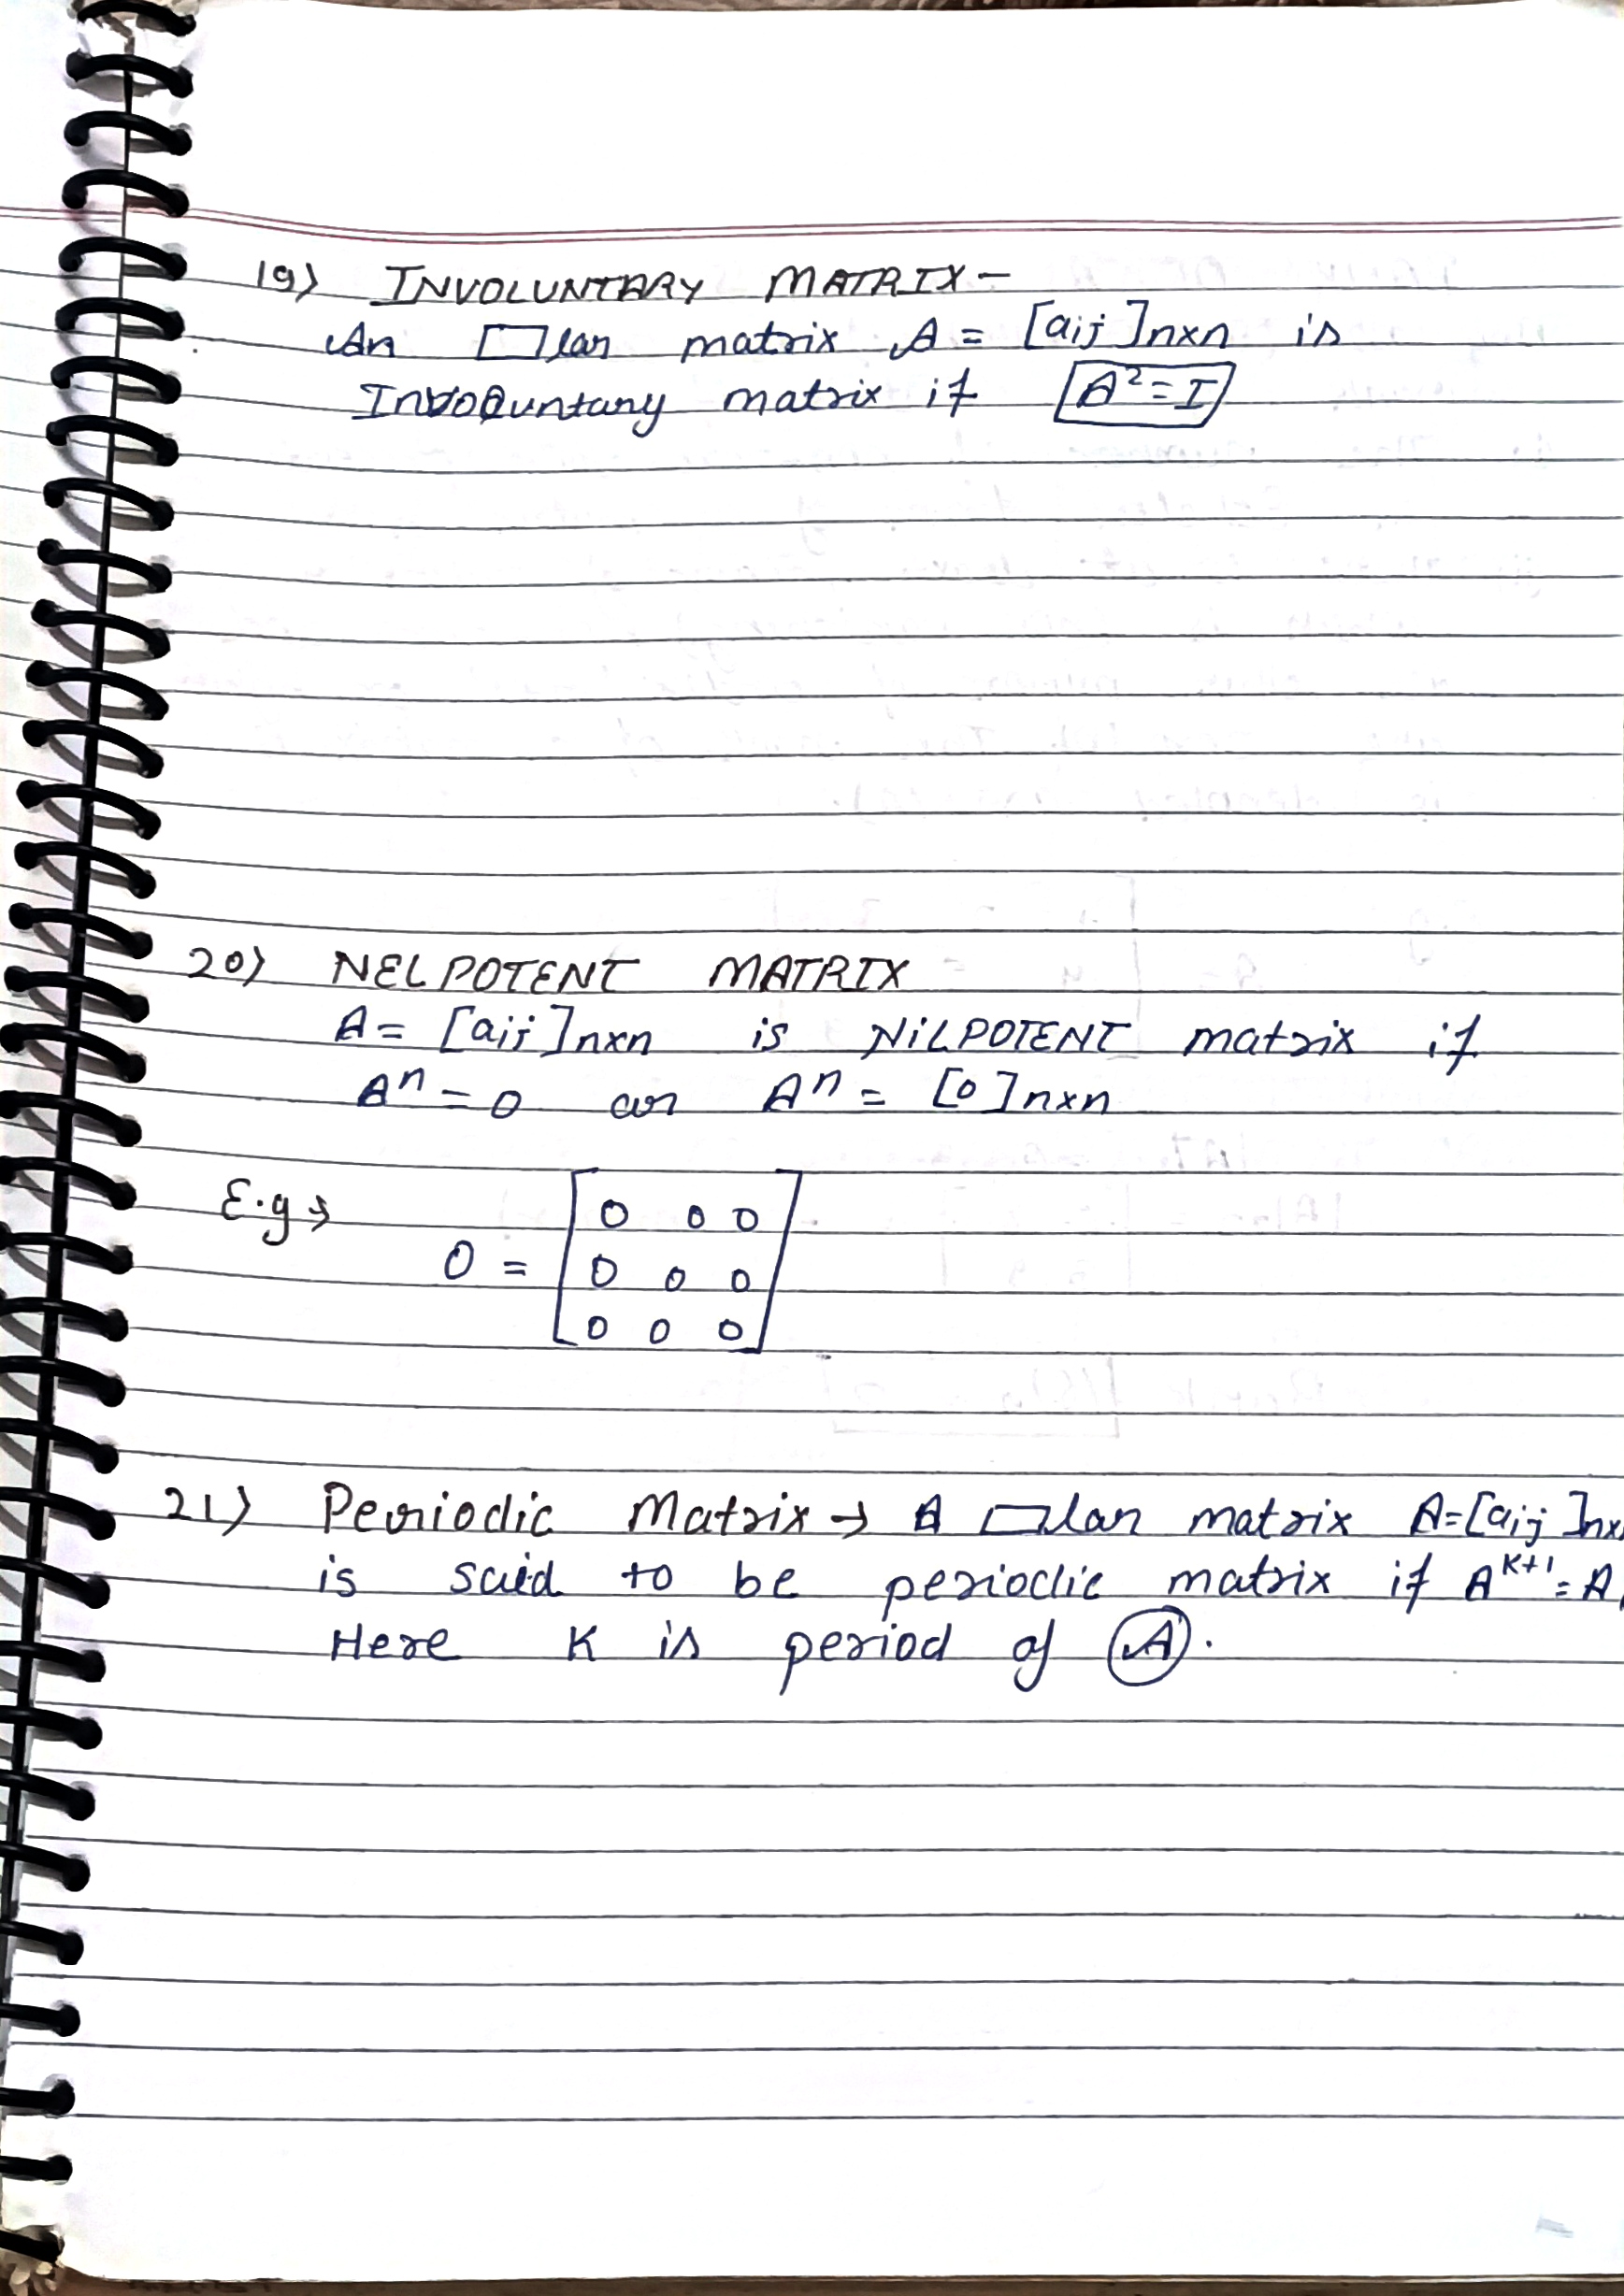 19) INVOLUNTARY MATRIX-
An ▭lar matrix A = [aij]nxn is
Involuntary matrix if A² = I
20) NELPOTENT MATRIX
A = [aij]nxn is NiLPOTENT matrix if
Aⁿ = 0 or Aⁿ = [0]nxn
E.g →
0 = [0 0 0
0 0 0
0 0 0]
21) Periodic Matrix → A ▭lar matrix A=[aij]nx
is said to be periodic matrix if Aᴷ⁺¹ = A,
Here K is period of A.